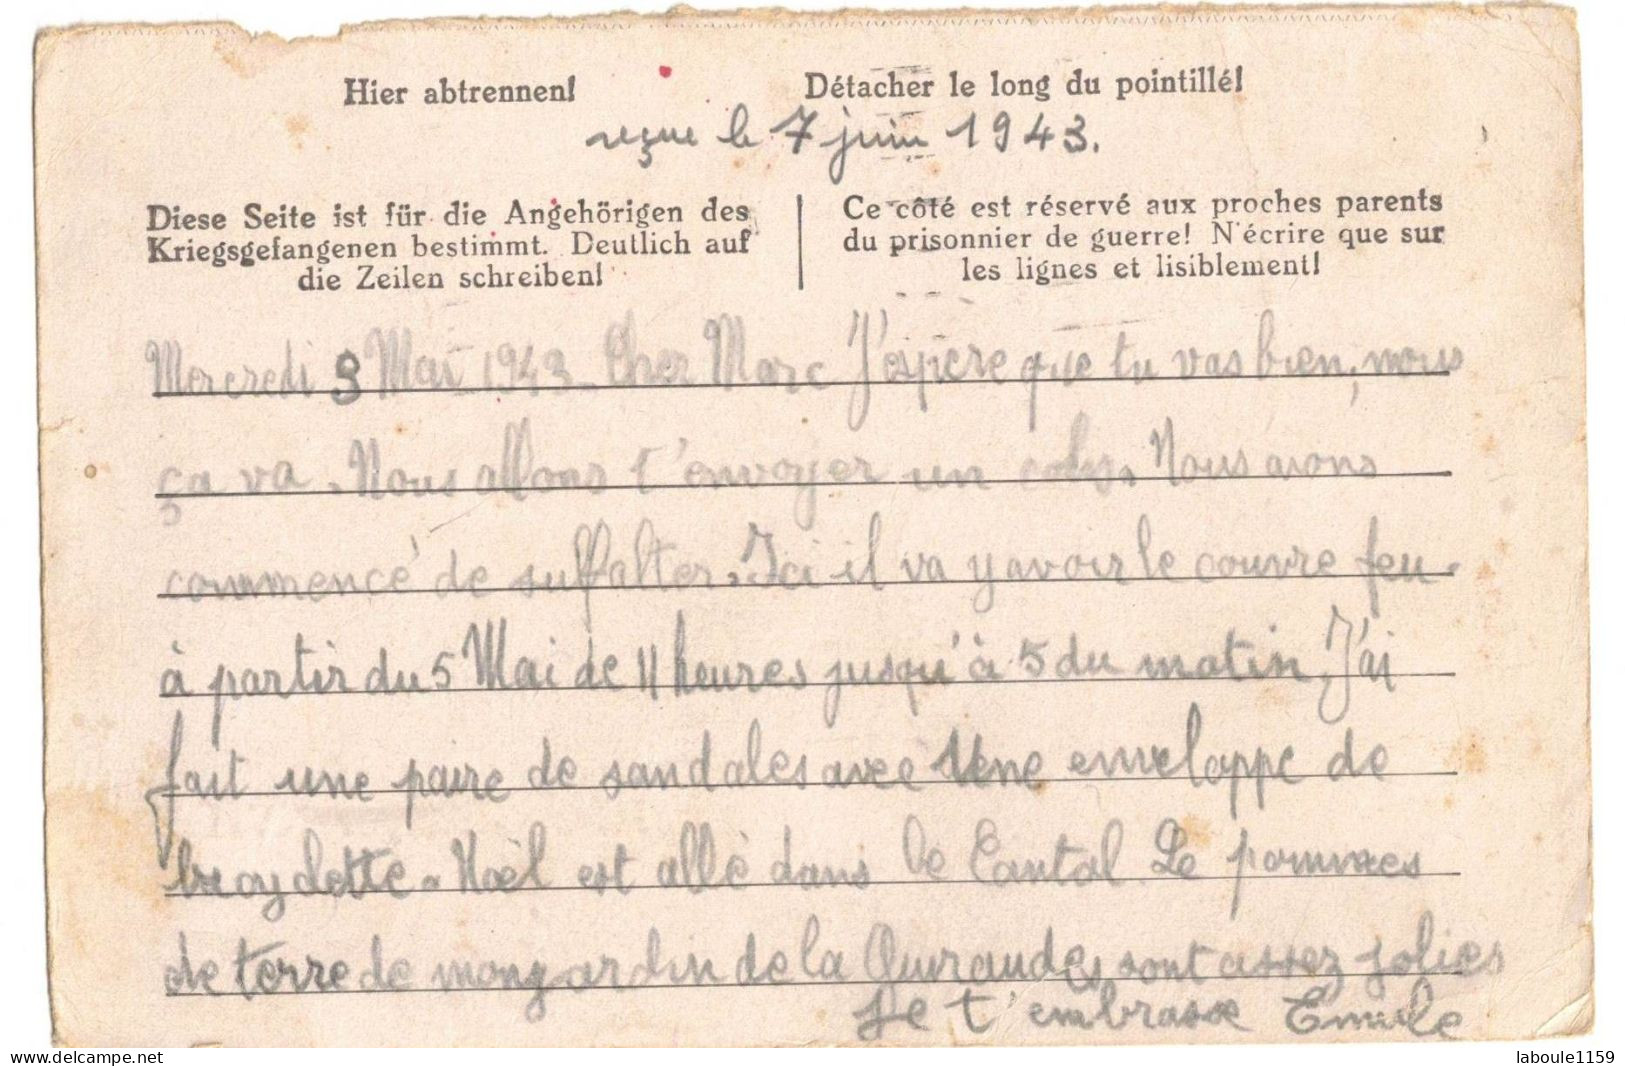 Hier abtrennen!
Détacher le long du pointillé!
reçue le 7 juin 1943.
Diese Seite ist für die Angehörigen des
Kriegsgefangenen bestimmt. Deutlich auf
die Zeilen schreiben!
Ce côté est réservé aux proches parents
du prisonnier de guerre! N'écrire que sur
les lignes et lisiblement!
Mercredi Mai 1943 - Cher Marc J'espère que tu vas bien, nous
ça va. Nous allons t'envoyer un colis. Nous avons
commencé de suffalter. Ici il va y avoir le couvre feu.
à partir du 5 Mai de 11 heures jusqu'à 5 du matin. J'ai
fait une paire de sandales avec une enveloppe de
Noël est allé dans le Cantal. Le pommes
de terre de mon jardin de la sont assez jolies
Je t'embrasse Emile
laboule1159